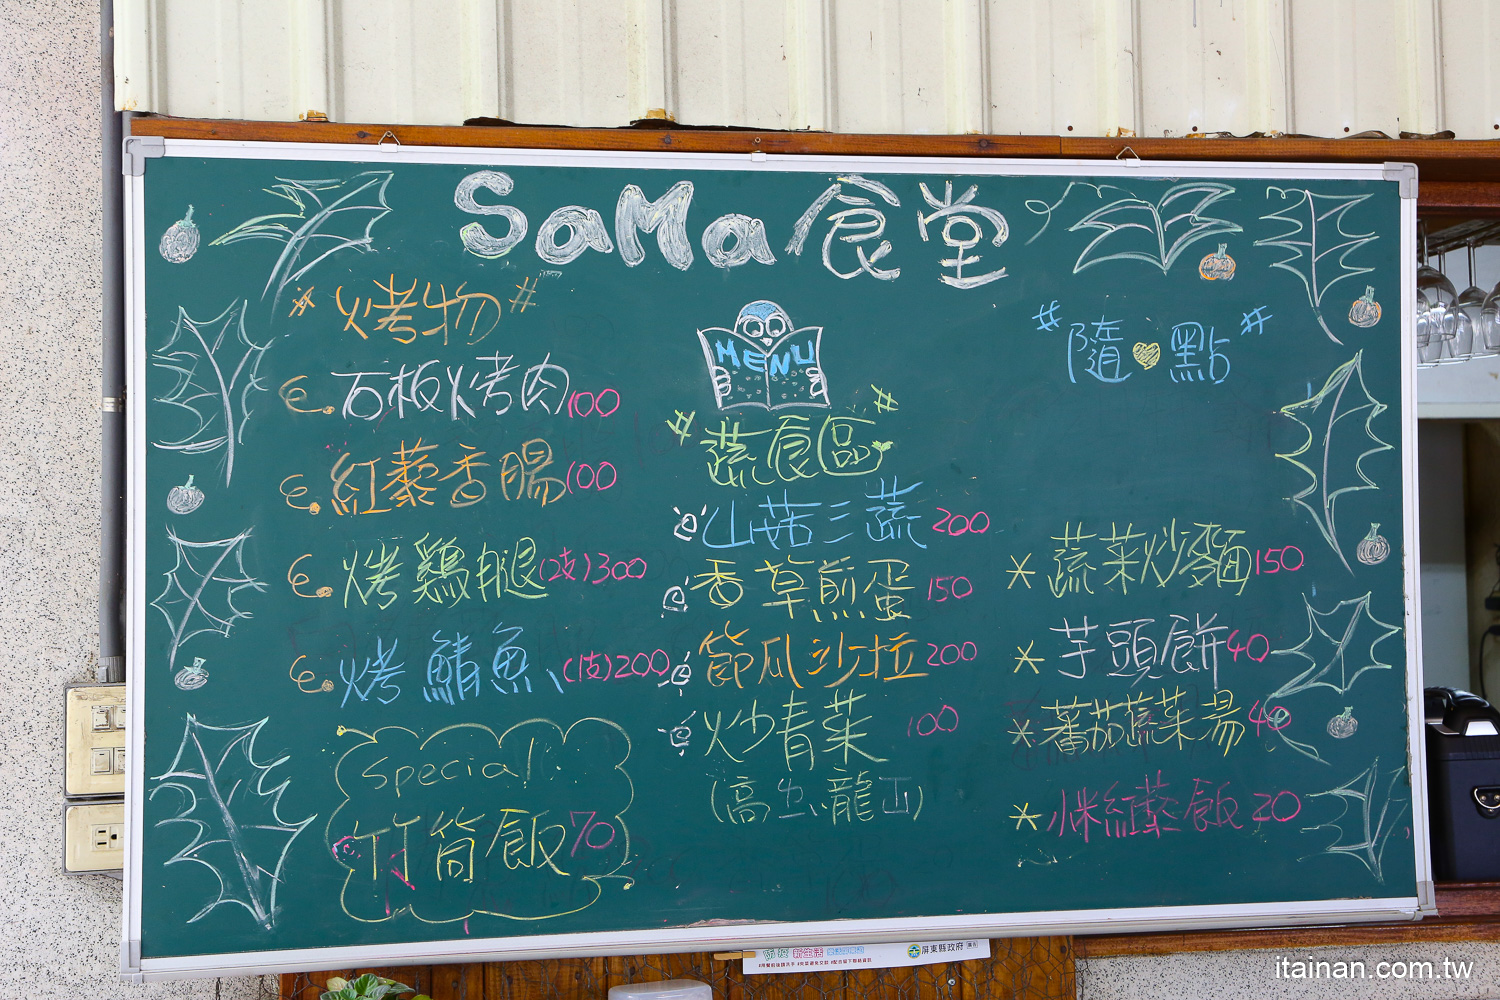 SaMa食堂
"烤物"
石板烤肉100
紅藜香腸100
烤鷄腿(2支)300
烤鯖魚(1支)200
special!
竹筒飯70
MENU
"蔬食區"
山茹三蔬200
香草煎蛋150
節瓜沙拉200
炒青菜100
(高
龍
"隨點"
蔬菜炒麵150
芋頭餅40
蕃茄蔬菜湯40
紅藜飯20
防疫 新生活
屏東縣政府
itainan.com.tw